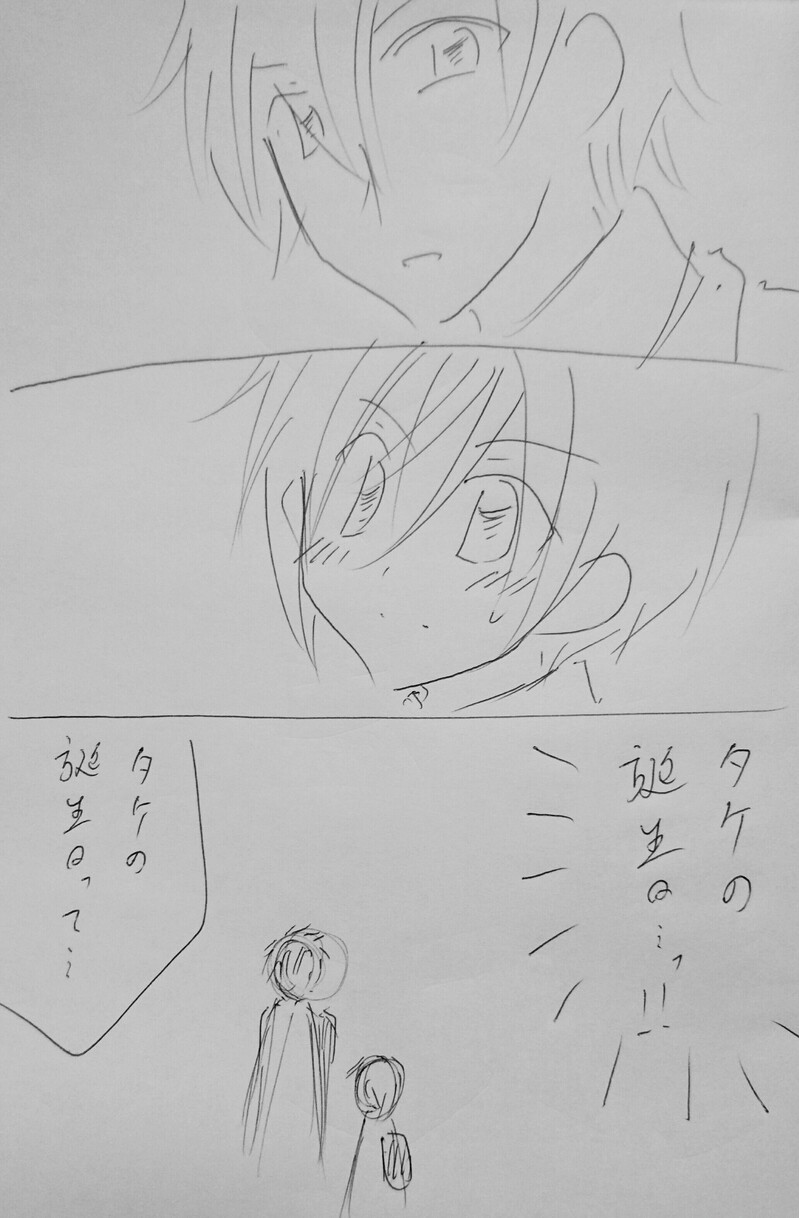 タケの
誕生日…っ!!
タケの
誕生日って…